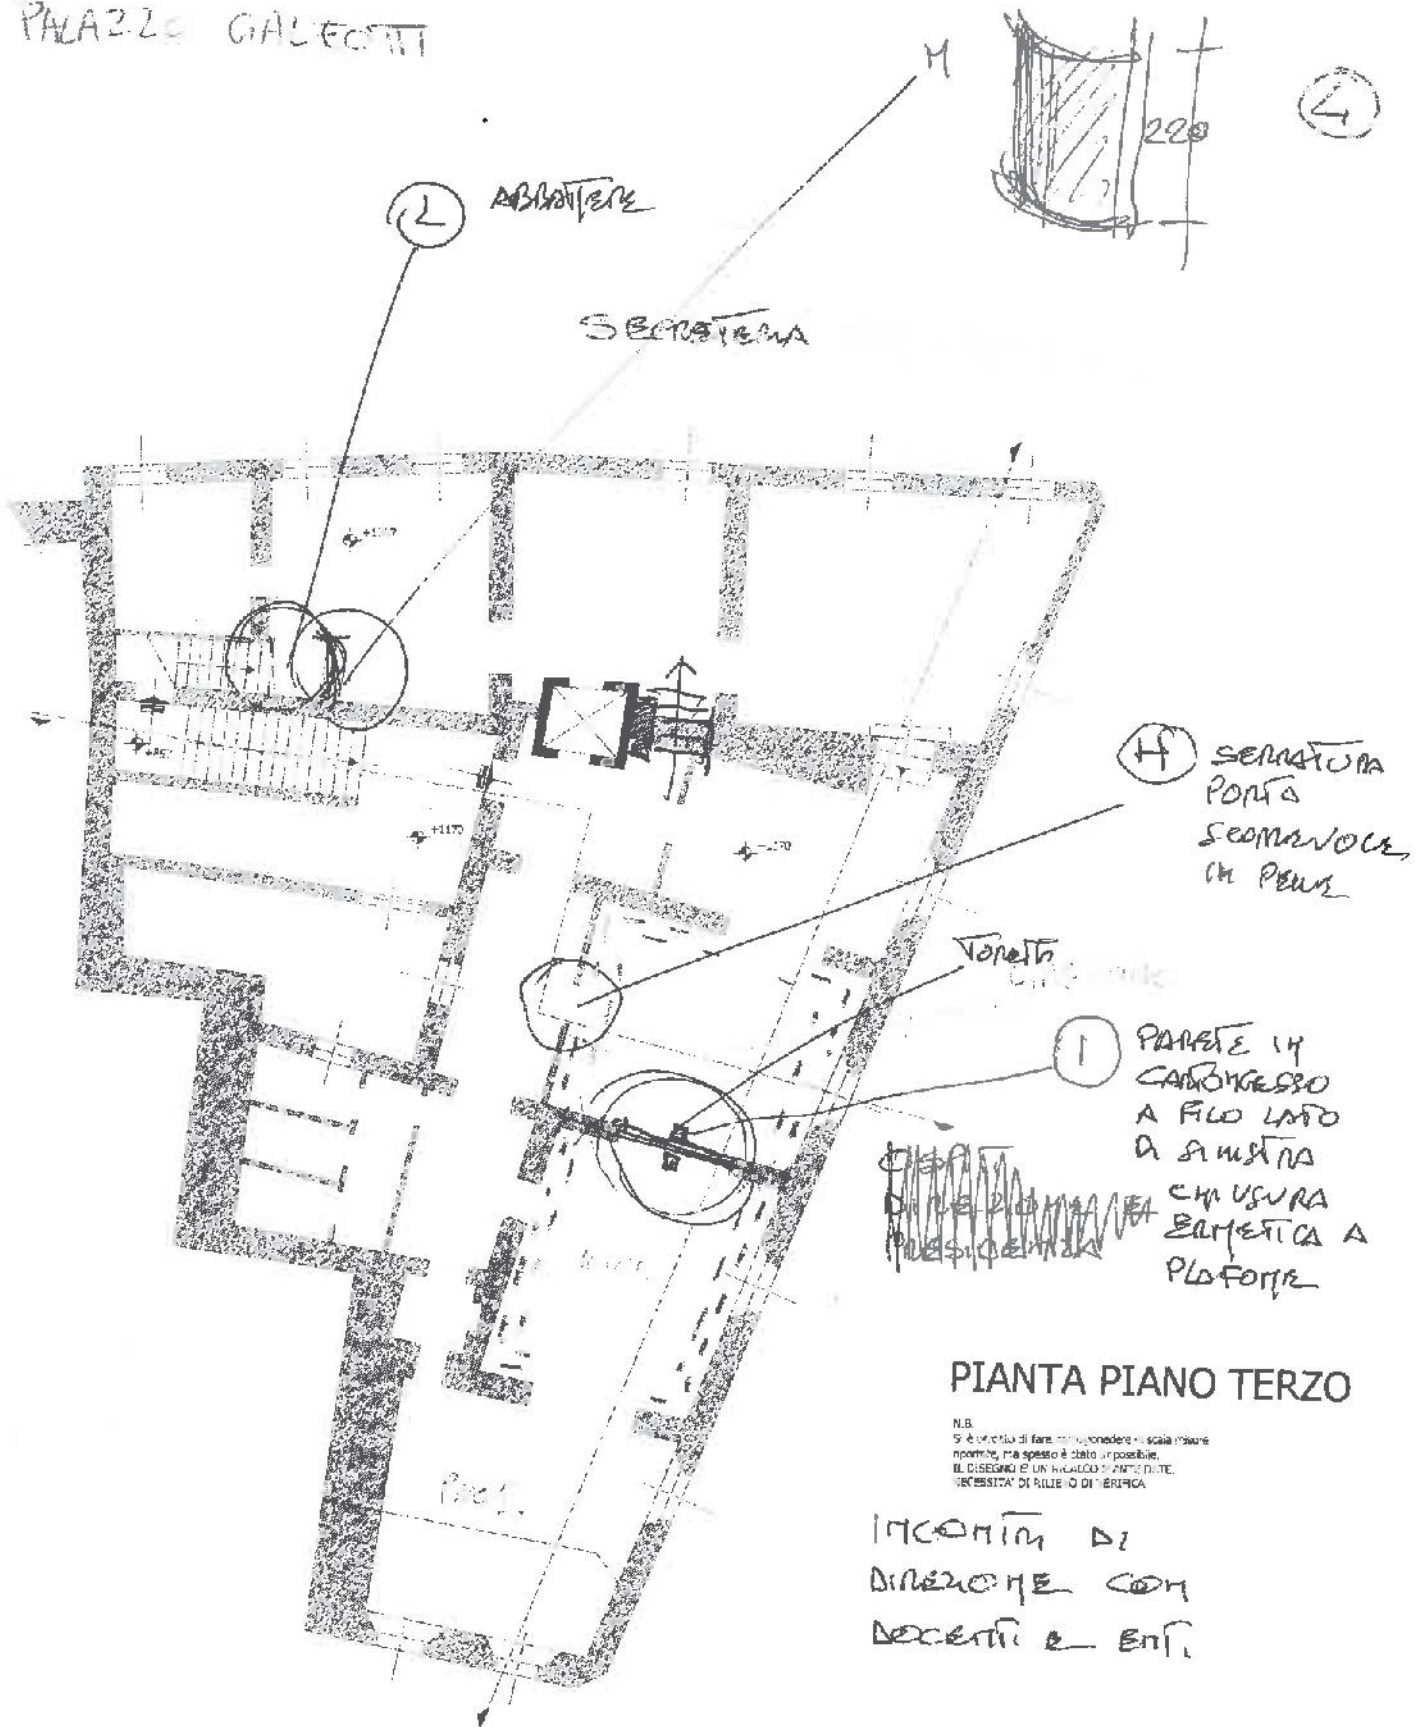 PALAZZO GALEOTTI
M
220
4
L
ABBATTERE
SEGRETERIA
+1170
H
SERRATURA
PORTA
SCORREVOLE
IN PELLE
I
PARETE IN
CARTONGESSO
A FILO LATO
DI SINISTRA
CHIUSURA
ERMETICA A
PLAFONE
PRESIDENZA
PIANTA PIANO TERZO
N.B.
di fare scala misure
riportate, ma spesso è stato impossibile.
IL DISEGNO E' UN RICALCO
NECESSITA' DI RILIEVO DI VERIFICA
INCONTRI DI
DIREZIONE CON
DOCENTI E ENTI